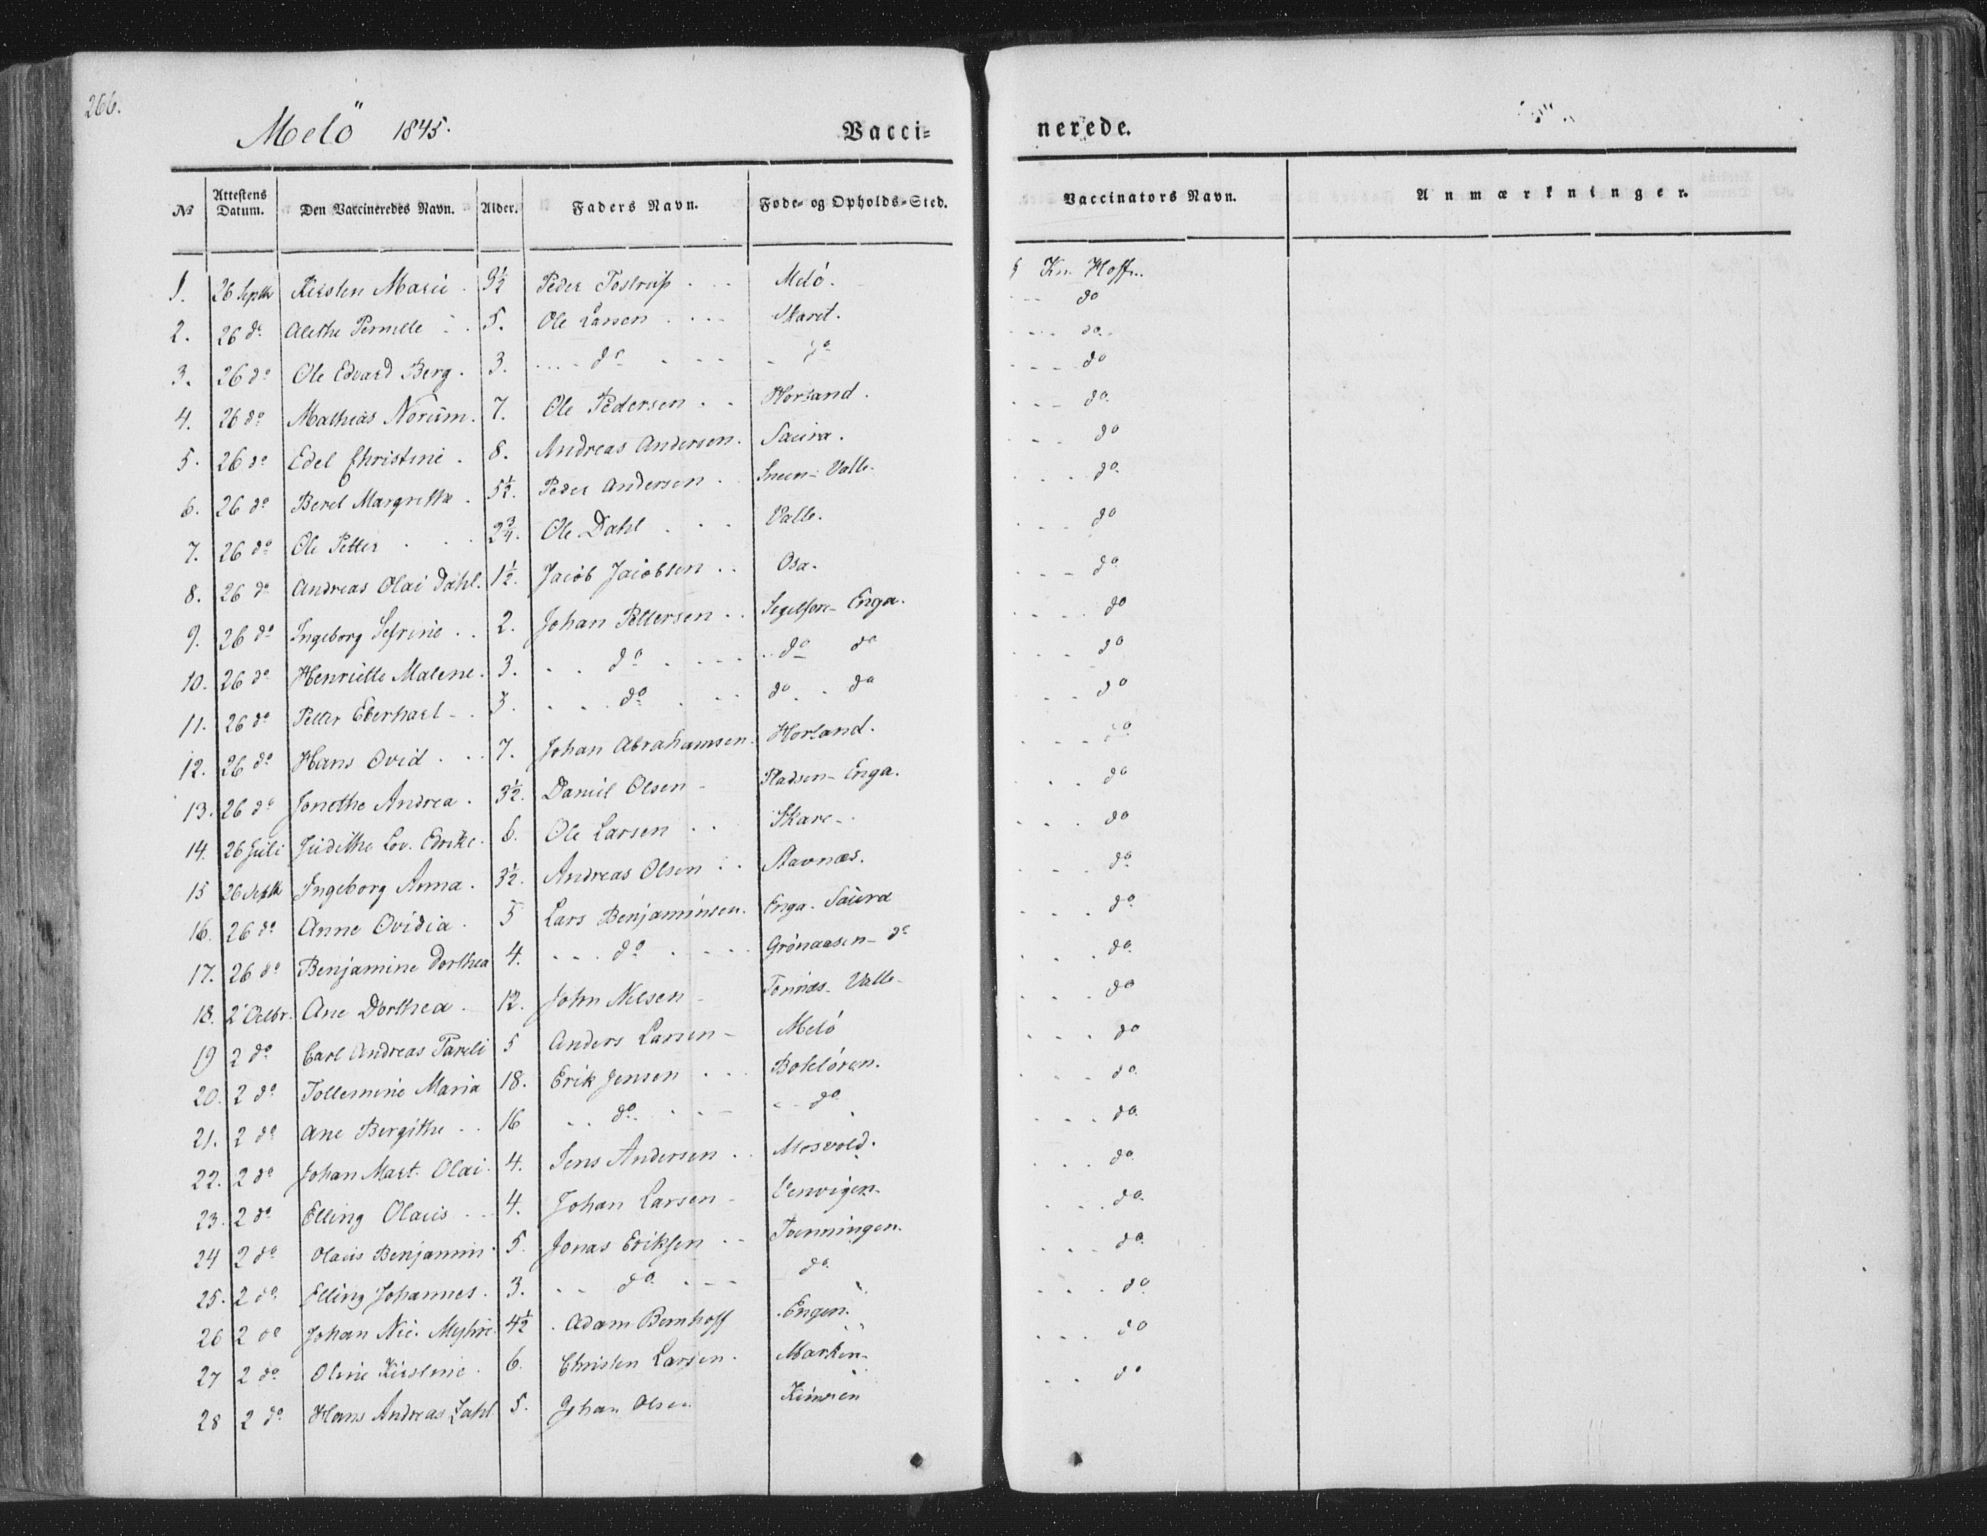 266.
Melö 1845.
Vacci=
nerede.
No Attestens Datum. Den Vaccineredes Navn. Alder. Faders Navn. Føde- og Opholds-Sted. Vaccinators Navn. Anmærkninger.
1. 26 Septbr Kirsten Marie . 9½ Peder Tostrup . . . Melö. Kn. Hoff..
2. 26 do Alethe Pernille . . 5. Ole Larsen . . . . Skaret. . . . do
3. 26 do Ole Edvard Berg . 3. . . . . do . . . . . do . . . . do
4. 26 do Mathias Norum . 7. Ole Pedersen . . Horsand . . . . . do
5. 26 do Edel Christine . 8. Andreas Andersen. Saura . . . . do
6. 26 do Berel Margrethe . 5½. Peder Andersen . Sneen - Valle. . . . do
7. 26 do Ole Petter . . . 2¾. Ole Dahl . . . Valle. . . . . do
8. 26 do Andreas Olai Dahl. 1½. Jacob Jacobsen . . Osa. . . . do
9. 26 do Ingeborg Sefrine . . 2. Johan Pettersen . . Segelfore - Enga. . . . do
10. 26 do Henriette Malene . 3. . . do . . . . . . do do . . . . do
11. 26 do Petter Eberhart - . 3. . . . . do . . . do . . do . . . do
12. 26 do Hans Ovid . . . 7. Johan Abrahamsen. Horsand. . . . do
13. 26 do Jonethe Andrea . 3½. Daniel Olsen - Pladsen - Enga. . . . . do
14. 26 Juli Judithe Lov. Edrike. 6. Ole Larsen . . Skare - . . . do
15 26 Septbr Ingeborg Anna . 3½. Andreas Olsen . . Stavnæs. . . . do
16. 26 do Anne Ovidia . 5 Lars Benjaminsen. Enga - Saura . . . do
17. 26 do Benjamine Dorthea 4. . . . do . . . . Grönaasen - do . . . . do
18. 2' Octbr. Ane Dorthea . 12. John Nilsen - Tonnes - Valle - . . . do
19 2 do Carl Andreas Pareli 5 Anders Larsen - Melö . . . do
20. 2 do Tollemine Maria 18. Erik Jensen . . . Bolelören. . . . do
21. 2 do Ane Bergithe . . 16 . . do . . . - . - do . . . . do
22. 2 do Johan Mart. Olai . 4. Jens Andersen . . Mosvold. . . . do
23. 2 do Elling Olaus . . . 4. Johan Larsen - Venvigen. . . . do
24 2 do Olaus Benjamin . 5. Jonas Eriksen . . Tvenningen. . . . do
25. 2 do Elling Johannes . 3. . . do . . . do . . . do
26 2 do Johan Nic. Myhre 4½ . Adam Bernhoff . Engen. . . . do
27 2 do Oline Kirstine . 6. Christen Larsen . Marken . . . do
28 2 do Hans Andreas Zahl 5. Johan Olsen . . do